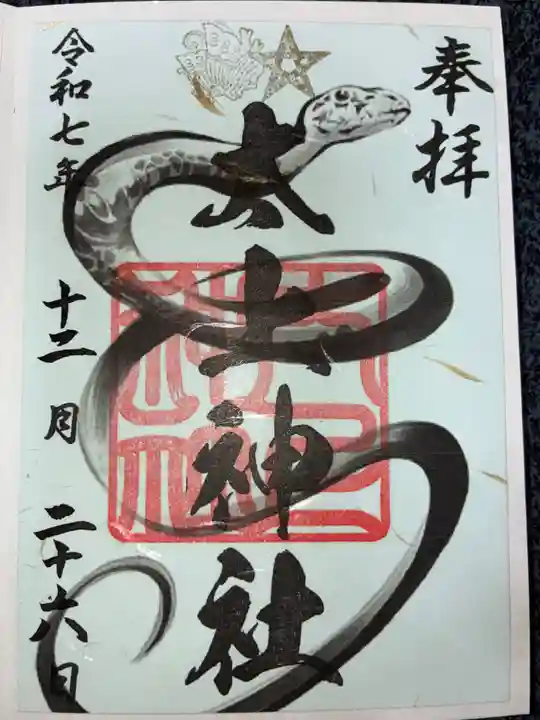 奉拝
大土神社
令和七年
十二月
二十六日